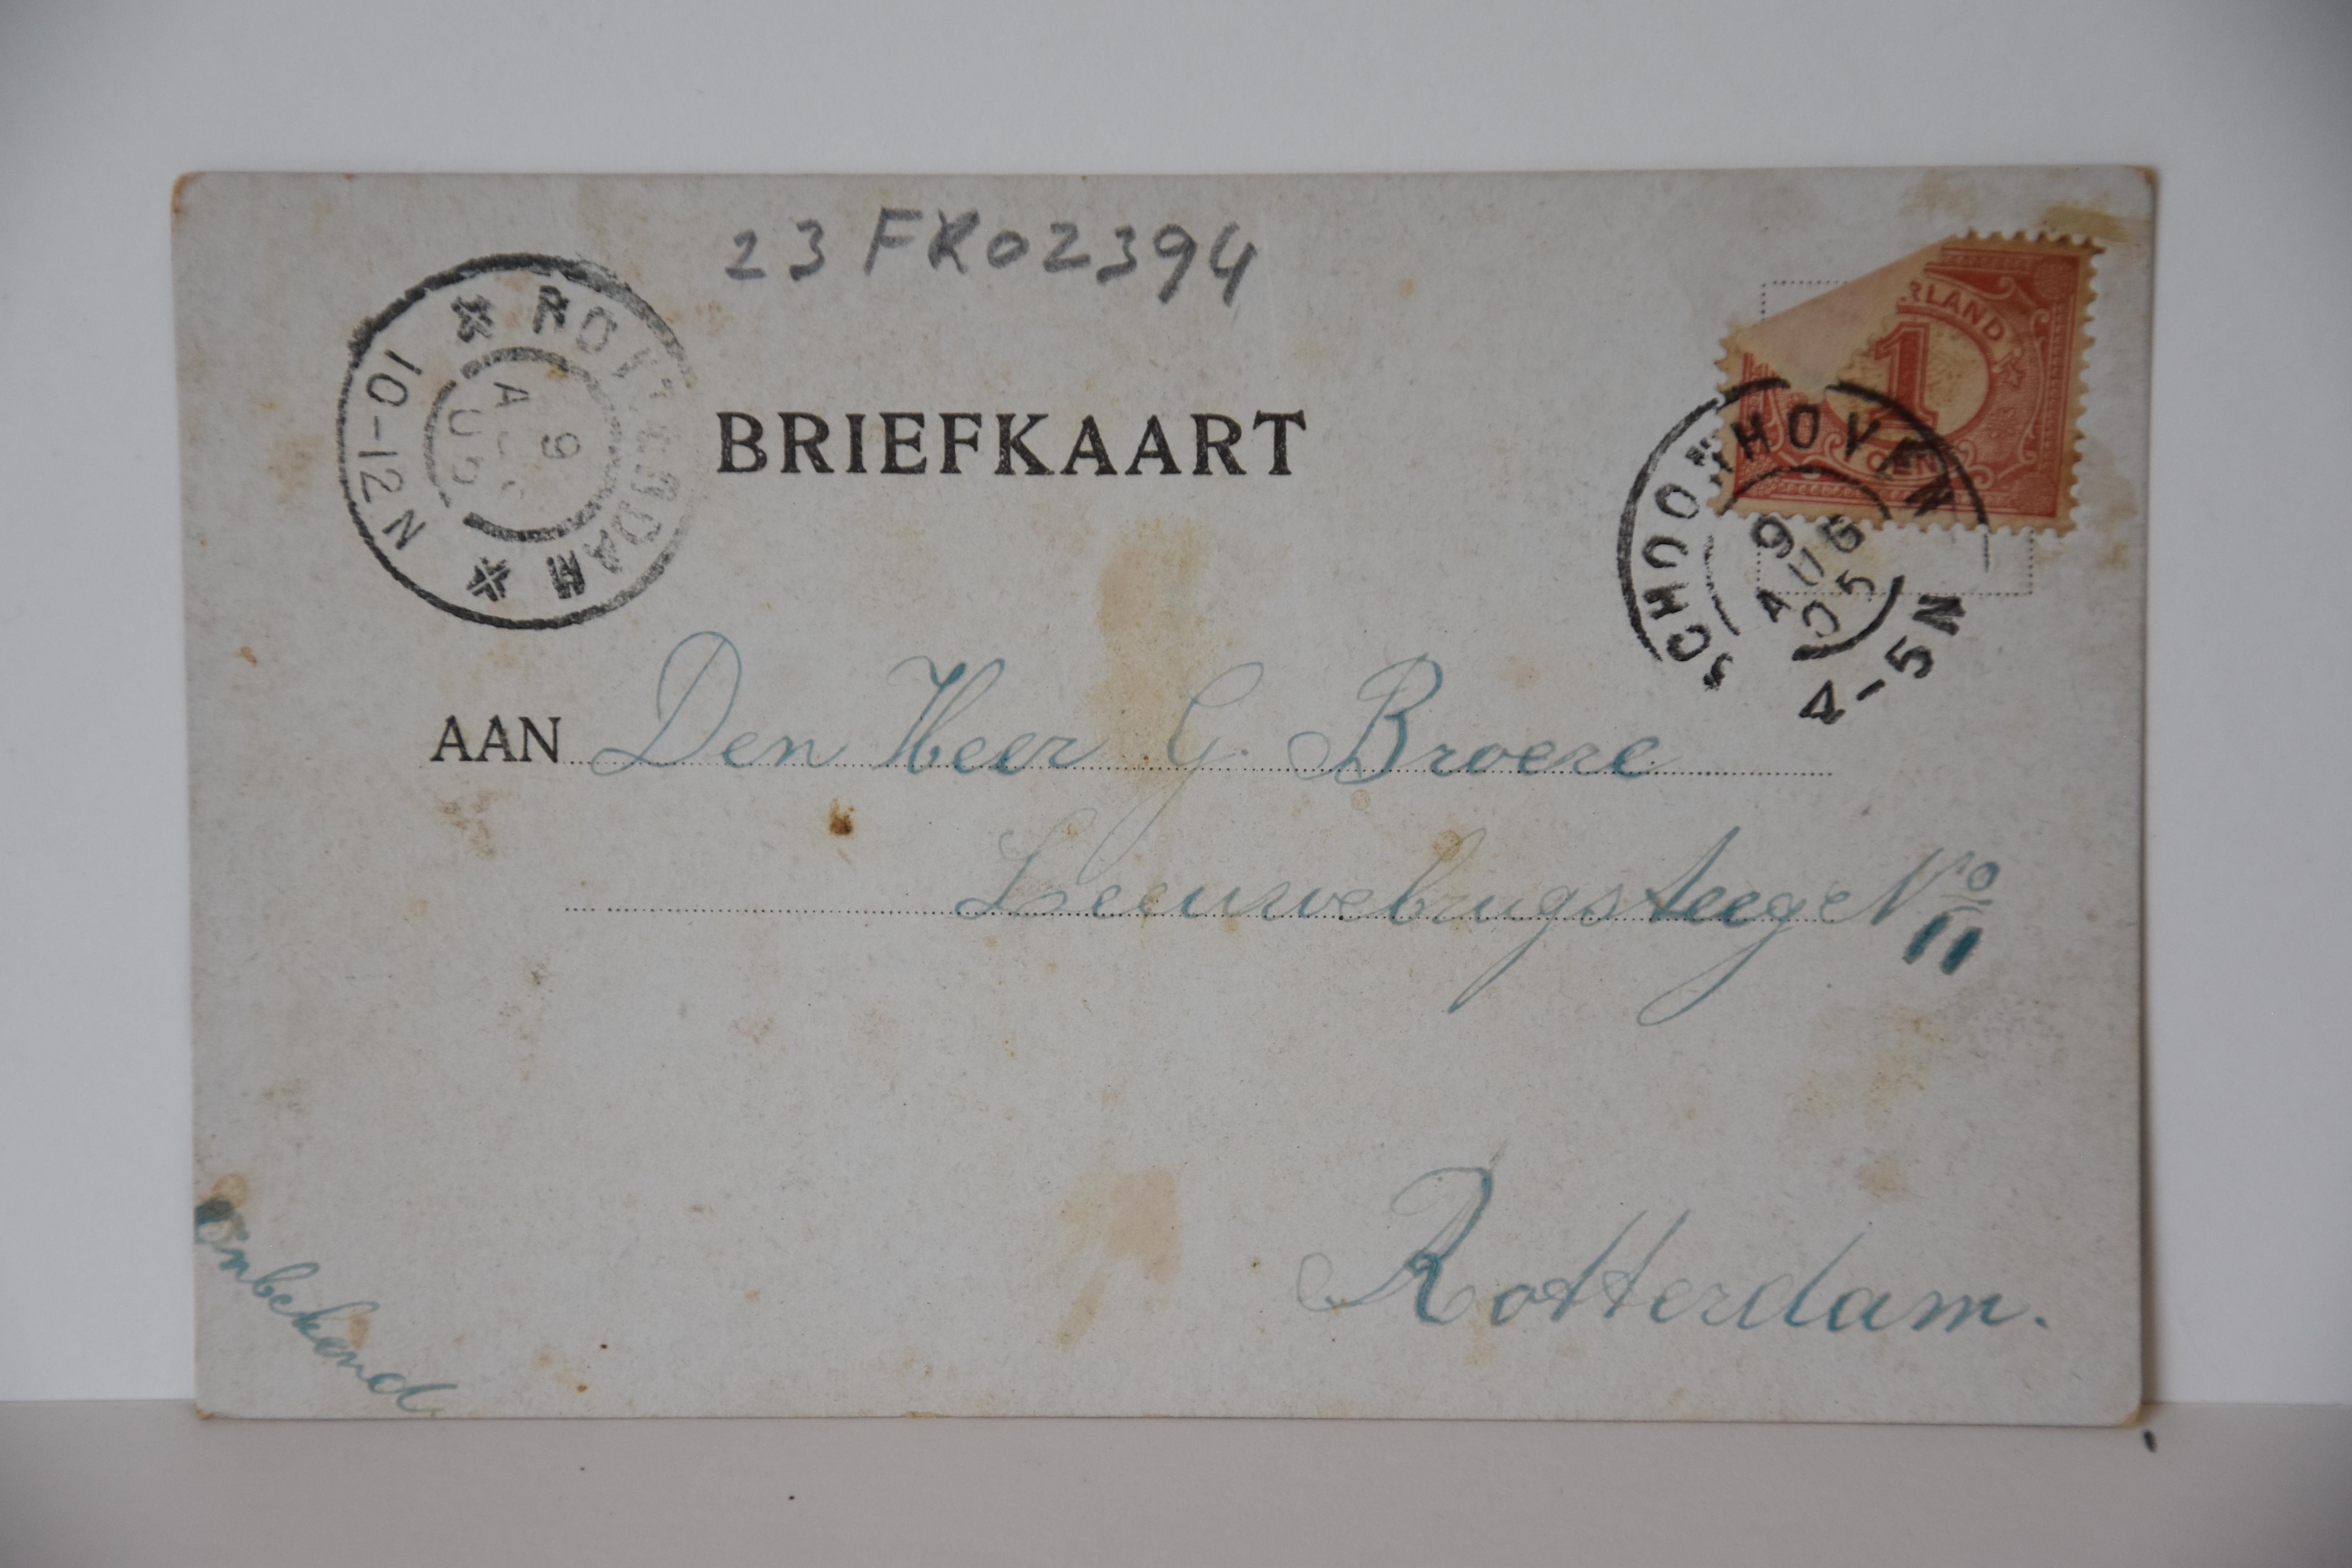 23FK02394
ROTTERDAM
9 AUG 05
10-12N
BRIEFKAART
RLAND
1
CEN
SCHOONHOVEN
9 AUG 05
4-5N
AAN Den Heer G. Broere
Leeuwebrugsteege No 11
Rotterdam.
Onbekend.